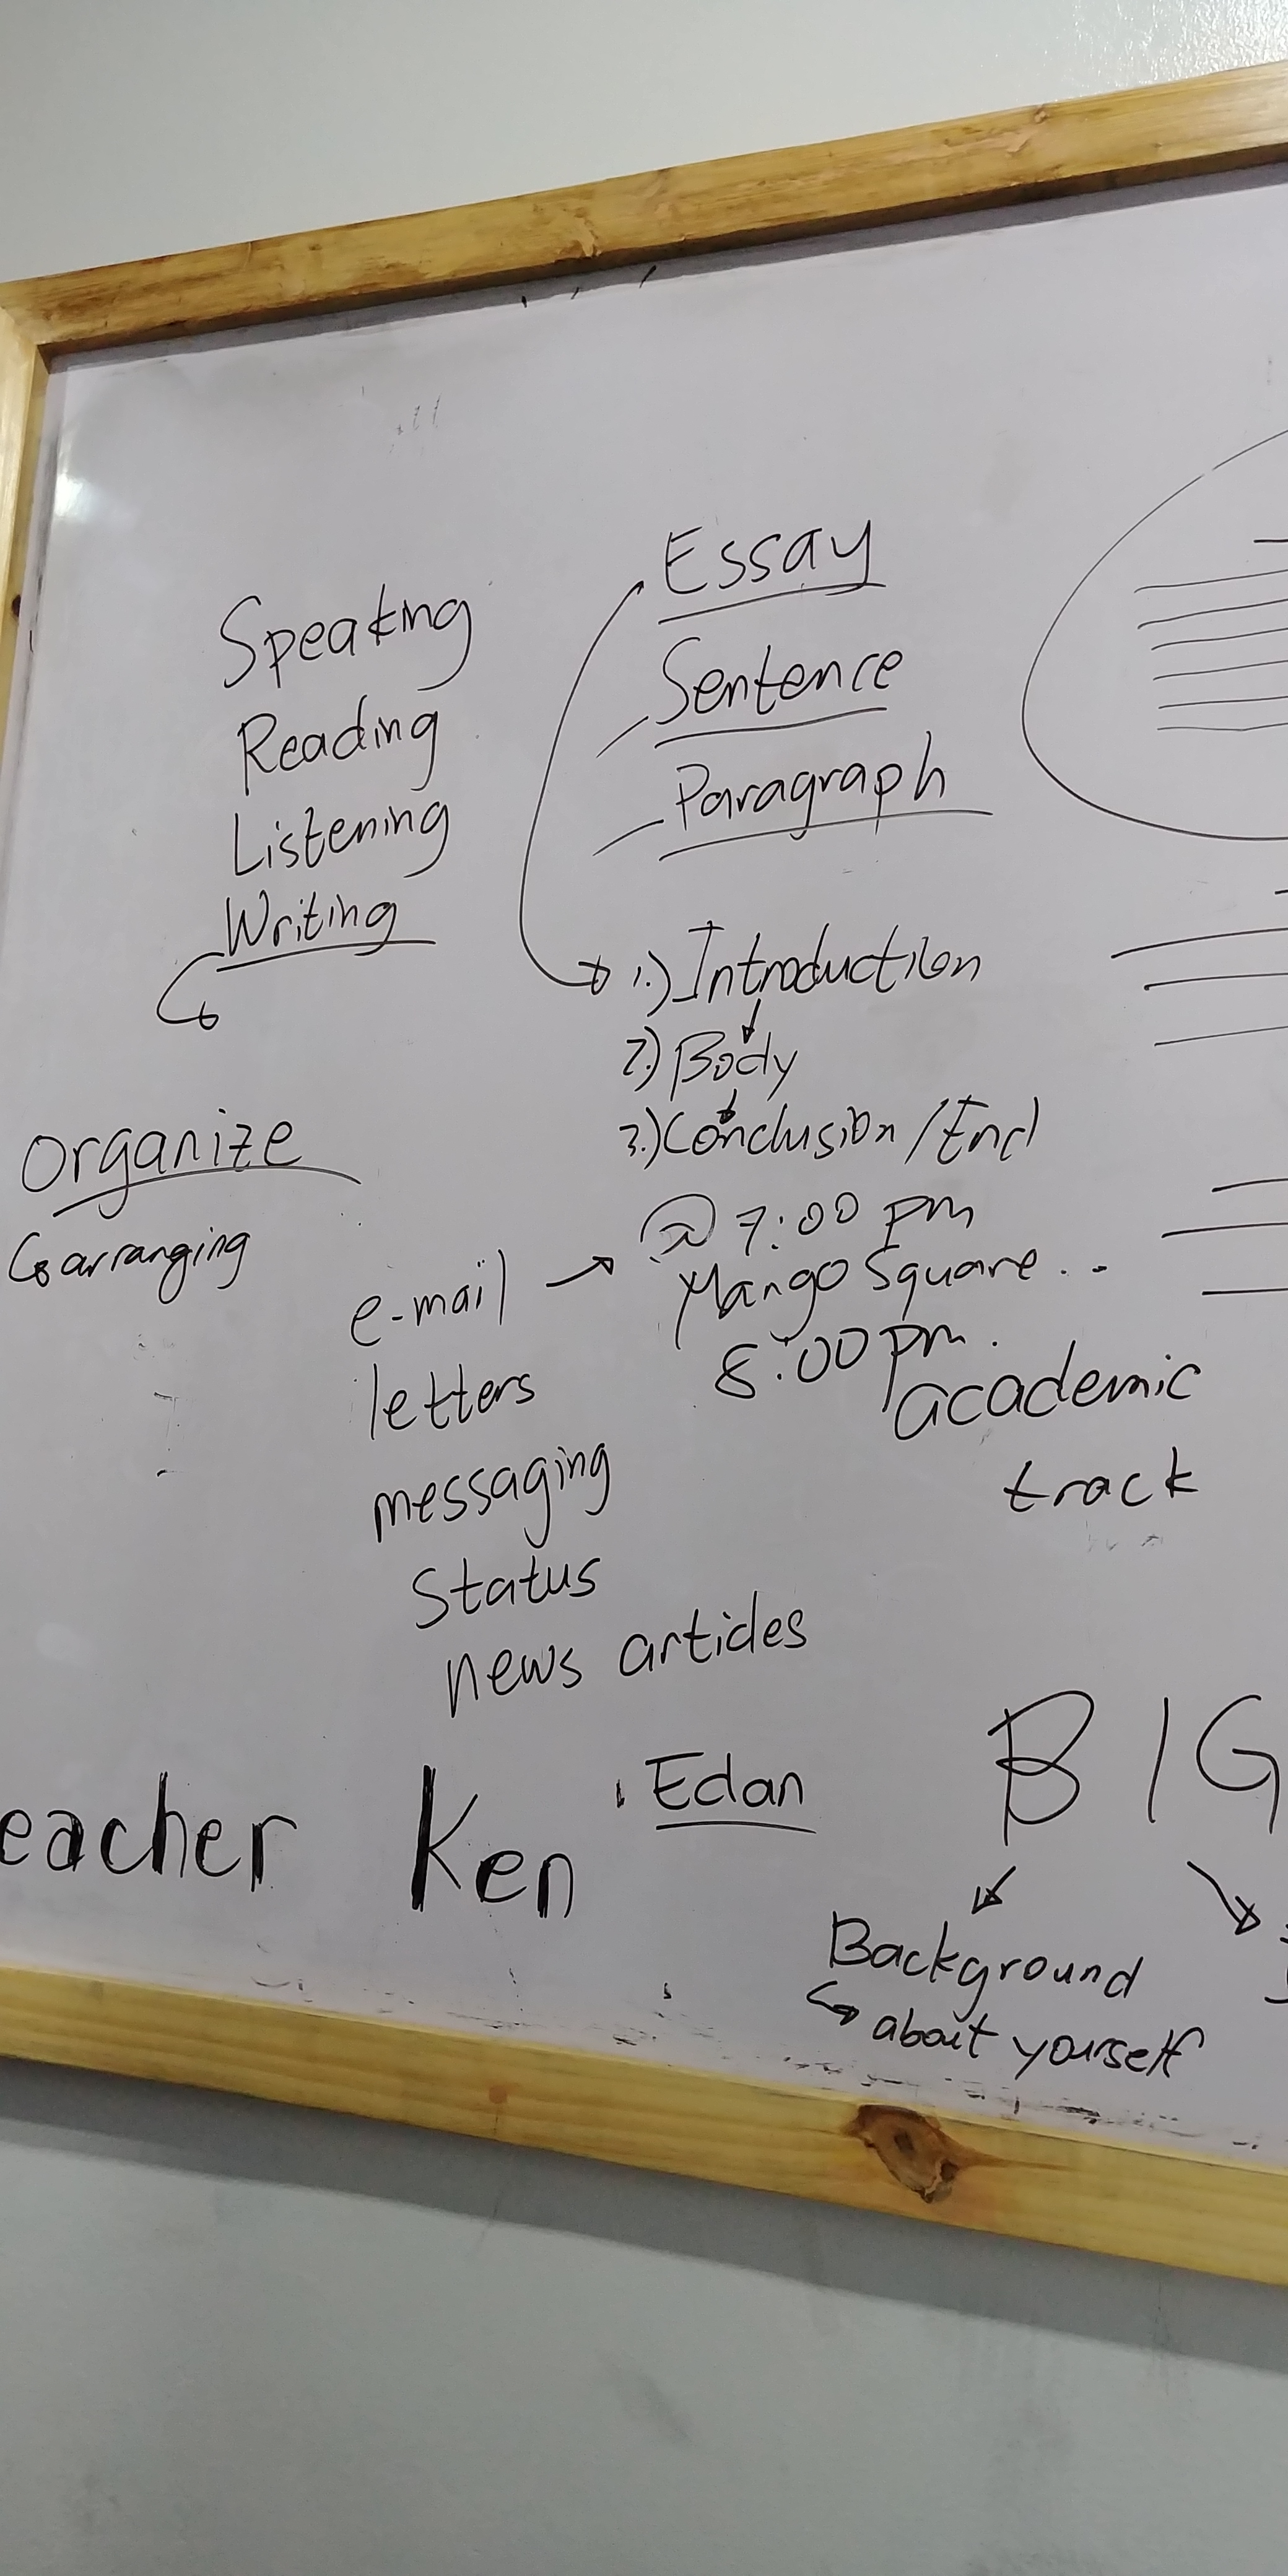 Speaking
Reading
Listening
Writing
Essay
Sentence
Paragraph
1.) Introduction
2.) Body
3.) Conclusion / End
organize
arranging
e-mail
letters
messaging
Status
news articles
@ 7:00 pm
Mango Square . .
8:00 pm.
academic
track
eacher Ken
Edan
BIG
Background
about yourself